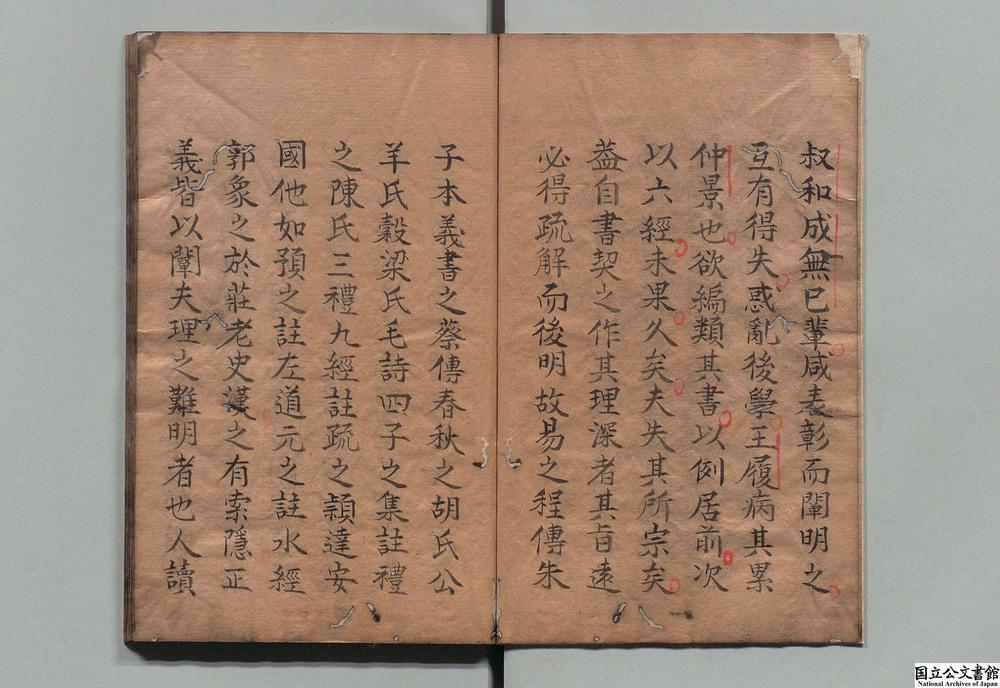 叔和成無已輩咸表彰而闡明之
互有得失惑亂後學王履病其累
仲景也欲編類其書以例居前次
以六經未果久矣夫失其所宗矣
葢自書契之作其理深者其旨遠
必得疏解而後明故易之程傳朱
子本義書之蔡傳春秋之胡氏公
羊氏穀梁氏毛詩四子之集註禮
之陳氏三禮九經註疏之頴達安
國他如預之註左道元之註水經
郭象之於莊老史漢之有索隱正
義皆以闡夫理之難明者也人讀
国立公文書館
National Archives of Japan